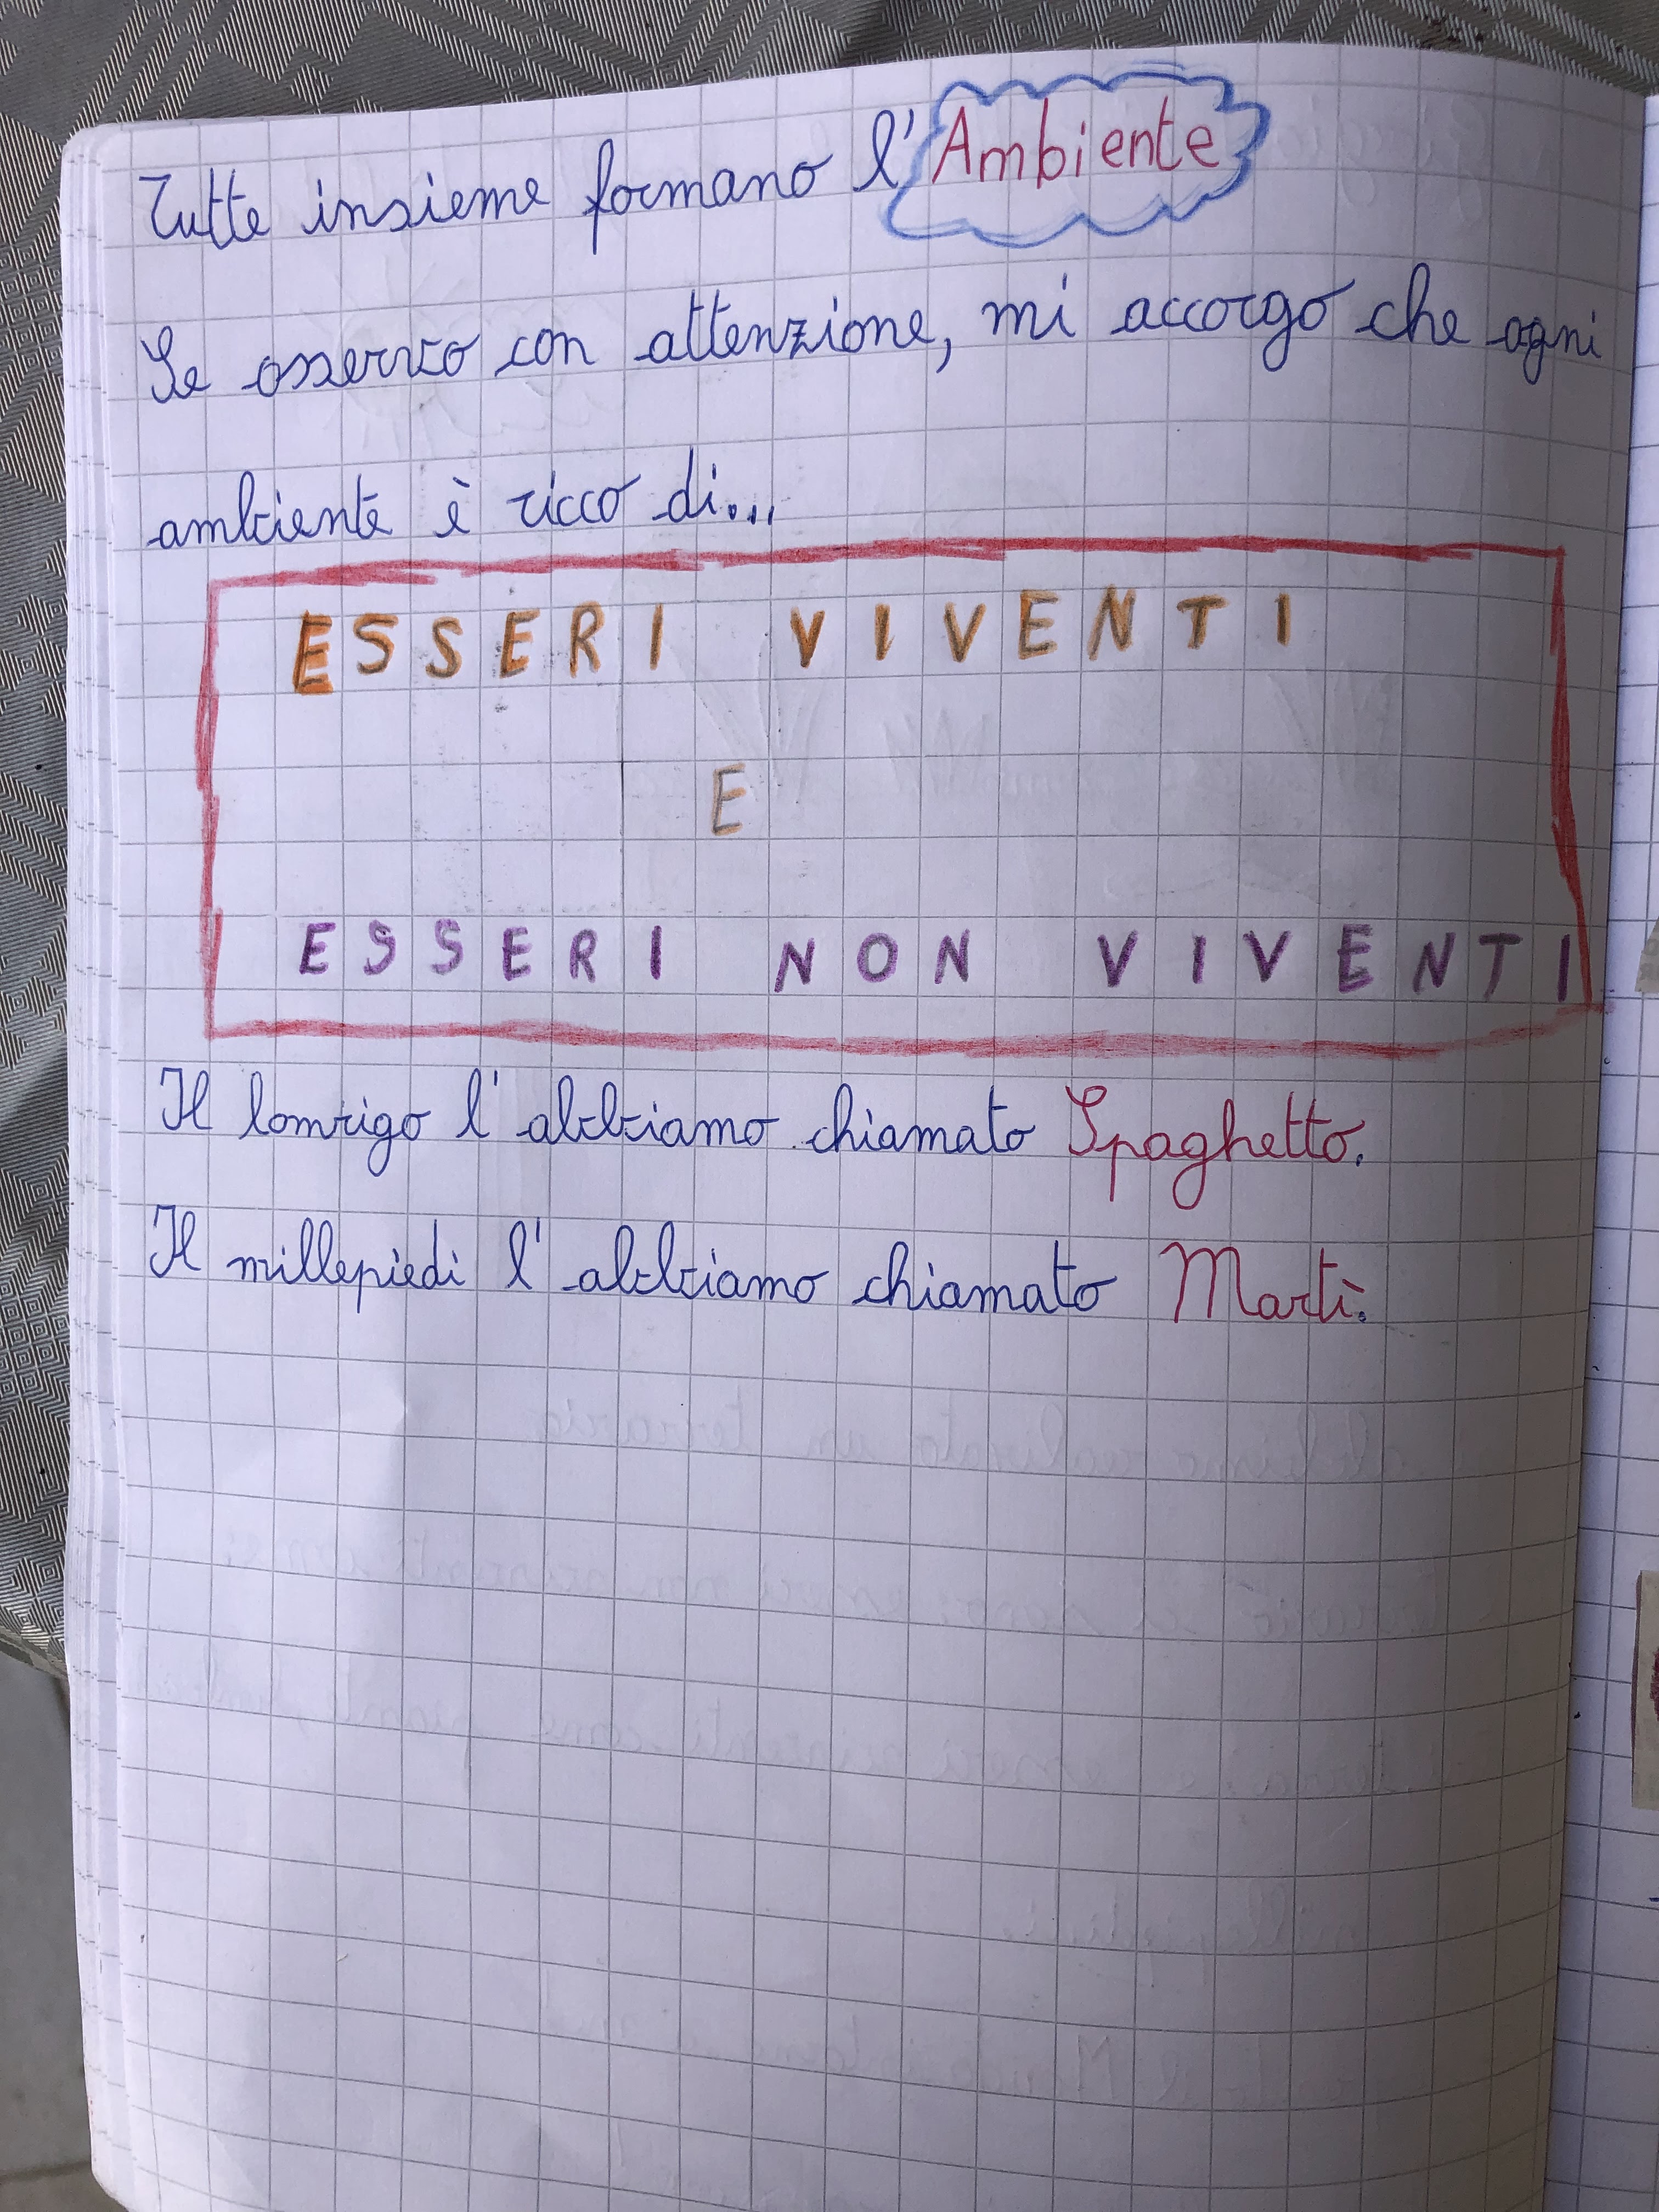 Tutte insieme formano l'Ambiente
Se osservo con attenzione, mi accorgo che ogni
ambiente è ricco di...
ESSERI VIVENTI
E
ESSERI NON VIVENTI
Il lombrigo l'abbiamo chiamato Spaghetto.
Il millepiedi l'abbiamo chiamato Martì.